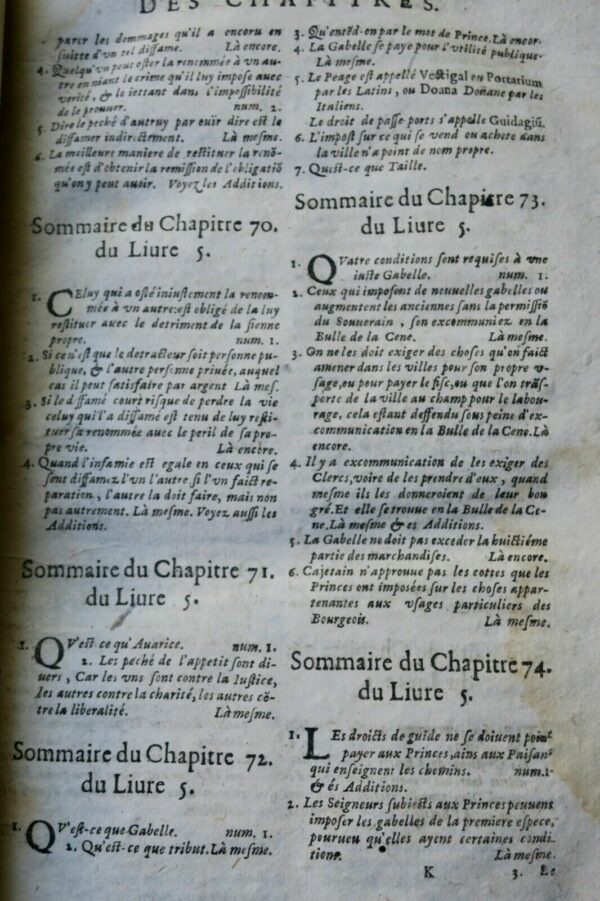 DES CHAPITRES.
parer les dommages qu'il a encoru en
suitte d'un tel diffame. Là encore.
4. Quelqu'vn peut oster la renommée à vn au-
tre en niant le crime qu'il luy impose auec
verité, & le iettant dans l'impossibilité
de le prouuer. num. 2.
5. Dire le peché d'autruy par ouir dire est le
diffamer indirectement. Là mesme.
6. La meilleure maniere de restituer la renō-
mée est d'obtenir la remission de l'obligatiō
qu'on y peut auoir. Voyez les Additions.
Sommaire du Chapitre 70.
du Liure 5.
1. CEluy qui a osté iniustement la renom-
mée à vn autre: est obligé de la luy
restituer auec le detriment de la sienne
propre. num. 1.
2. Si ce n'est que le detracteur soit personne pu-
blique, & l'autre personne priuée, auquel
cas il peut satisfaire par argent Là mes.
3. Si le diffamé court risque de perdre la vie
celuy qui l'a diffamé est tenu de luy resti-
tuer sa renommée auec le peril de sa pro-
pre vie. Là encore.
4. Quand l'infamie est egale en ceux qui se
sont diffamez l'vn l'autre, si l'vn faict re-
paration, l'autre la doit faire, mais non
pas autrement. Là mesme. Voyez aussi les
Additions.
Sommaire du Chapitre 71.
du Liure 5.
1. QV'est ce qu'Auarice. num. 1.
2. Les peché de l'appetit sont di-
uers, Car les vns sont contre la Iustice,
les autres contre la charité, les autres cō-
tre la liberalité. Là mesme.
Sommaire du Chapitre 72.
du Liure 5.
1. QV'est-ce que Gabelle. num. 1.
2. Qu'est-ce que tribut. Là mesme.
3. Qu'entēd-on par le mot de Prince. Là encor.
4. La Gabelle se paye pour l'vtilité publique.
Là mesme.
5. Le Peage est appellé Vectigal ou Portarium
par les Latins, ou Doana Doüane par les
Italiens.
Le droit de passe-ports s'appelle Guidagiū.
6. L'impost sur ce qui se vend ou achete dans
la ville n'a point de nom propre.
7. Quest-ce que Taille.
Sommaire du Chapitre 73.
du Liure 5.
1. QVatre conditions sont requises à vne
iuste Gabelle. num. 1.
2. Ceux qui imposent de nouuelles gabelles ou
augmentent les anciennes sans la permissiō
du Souuerain, son excommuniez en la
Bulle de la Cene. Là mesme.
3. On ne les doit exiger des choses qu'on faict
amener dans les villes pour son propre v-
sage, ou pour payer le fisc, ou que l'on trās-
porte de la ville au champ pour le labou-
rage, cela estant deffendu sous peine d'ex-
communication en la Bulle de la Cene. Là
encore.
4. Il y a excommunication de les exiger des
Clercs, voire de les prendre d'eux, quand
mesme ils les donneroient de leur bon
gré. Et elle se trouue en la Bulle de la Ce-
ne. Là mesme & es Additions.
5. La Gabelle ne doit pas exceder la huictiéme
partie des marchandises. Là encore.
6. Cajetain n'approuue pas les cottes que les
Princes ont imposées sur les choses appar-
tenantes aux vsages particuliers des
Bourgeois. Là mesme.
Sommaire du Chapitre 74.
du Liure 5.
1. LEs droicts de guide ne se doiuent point
payer aux Princes, ains aux Paisans
qui enseignent les chemins. num. 1.
& és Additions.
2. Les Seigneurs subiects aux Princes peuuent
imposer les gabelles de la premiere espece,
pourueu qu'elles ayent certaines condi-
tions. Là mesme.
K 3. Le